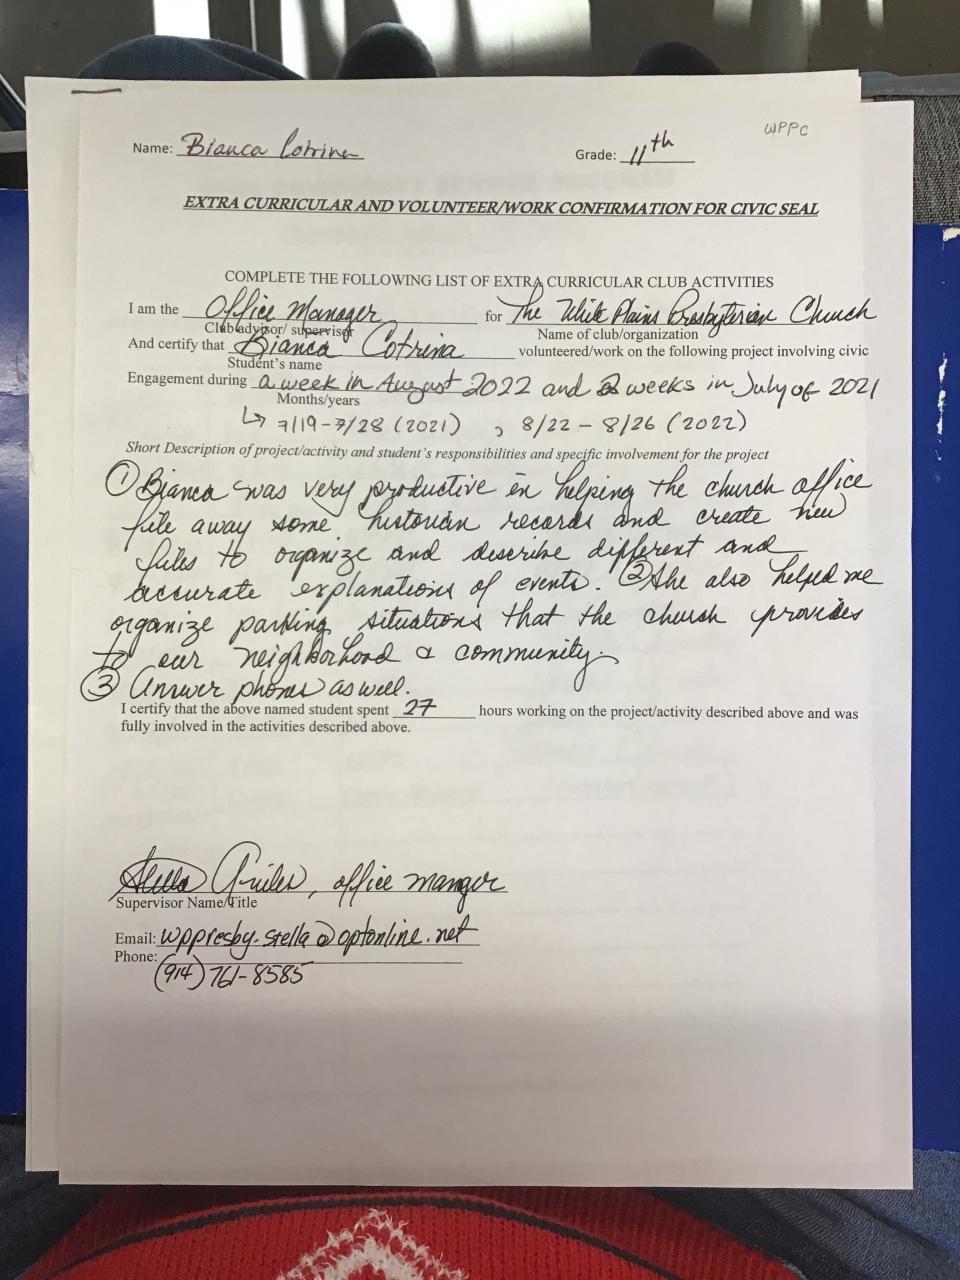 WPPC
Name: Bianca Cotrina Grade: 11th
EXTRA CURRICULAR AND VOLUNTEER/WORK CONFIRMATION FOR CIVIC SEAL
COMPLETE THE FOLLOWING LIST OF EXTRA CURRICULAR CLUB ACTIVITIES
I am the Office Manager for The White Plains Presbyterian Church
Club advisor/ supervisor Name of club/organization
And certify that Bianca Cotrina volunteered/work on the following project involving civic
Student's name
Engagement during a week in August 2022 and 2 weeks in July of 2021
Months/years
↳ 7/19-7/28 (2021) , 8/22 - 8/26 (2022)
Short Description of project/activity and student's responsibilities and specific involvement for the project
① Bianca was very productive in helping the church office
file away some historian records and create new
files to organize and describe different and
accurate explanations of events. ② She also helped me
organize parking situations that the church provides
to our neighborhood & community.
③ Answer phones as well.
I certify that the above named student spent 27 hours working on the project/activity described above and was
fully involved in the activities described above.
Stella , office manger
Supervisor Name/Title
Email: wppresby.stella@optonline.net
Phone:
(914) 761-8585